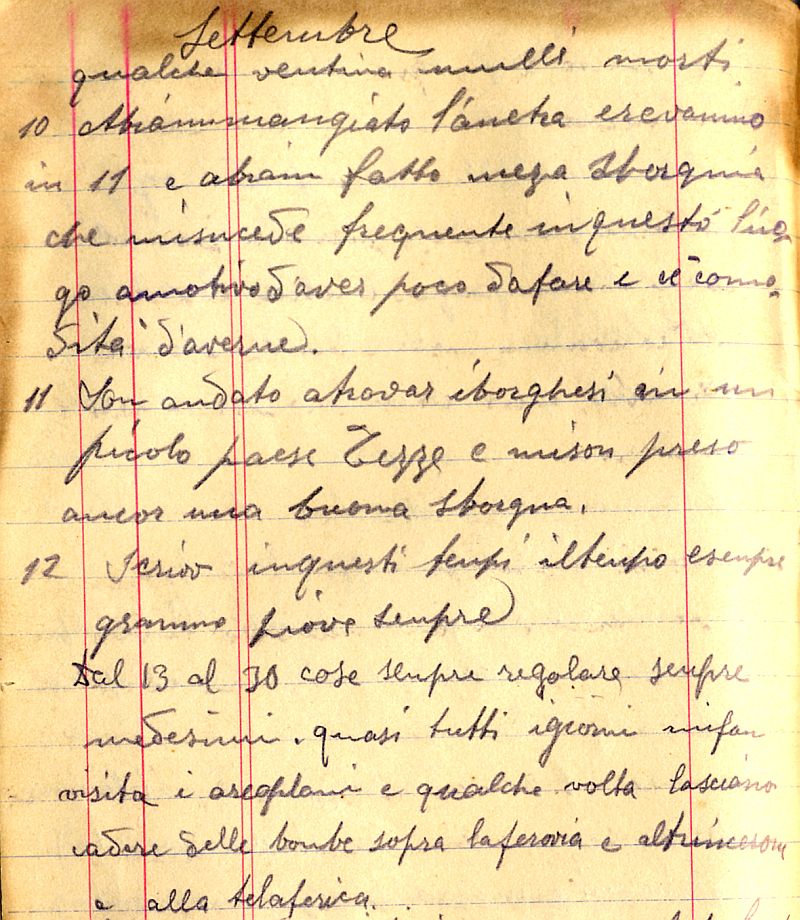 Settembre
qualche ventina mulli morti
10 Abiammangiato l'áneha erevamino
in 11 e abiam fatto meza sborgnia
che misucede frequente inquesto luo-
go amotivo d'aver poco dafare e cè como-
dità d'averne.
11 Son andato atrovar iborghesi in un
picolo paese Tezze e mison preso
ancor una buona sborgna.
12 Scrivo inquesti tempi iltenpo esenpre
gramo piove senpre
Dal 13 al 30 cose senpre regolare senpre
medesimi. quasi tutti igiorni mifan
visita i areoplani e qualche volta lasciano
cadere delle bonbe sopra laferovia e
e alla telaferica.